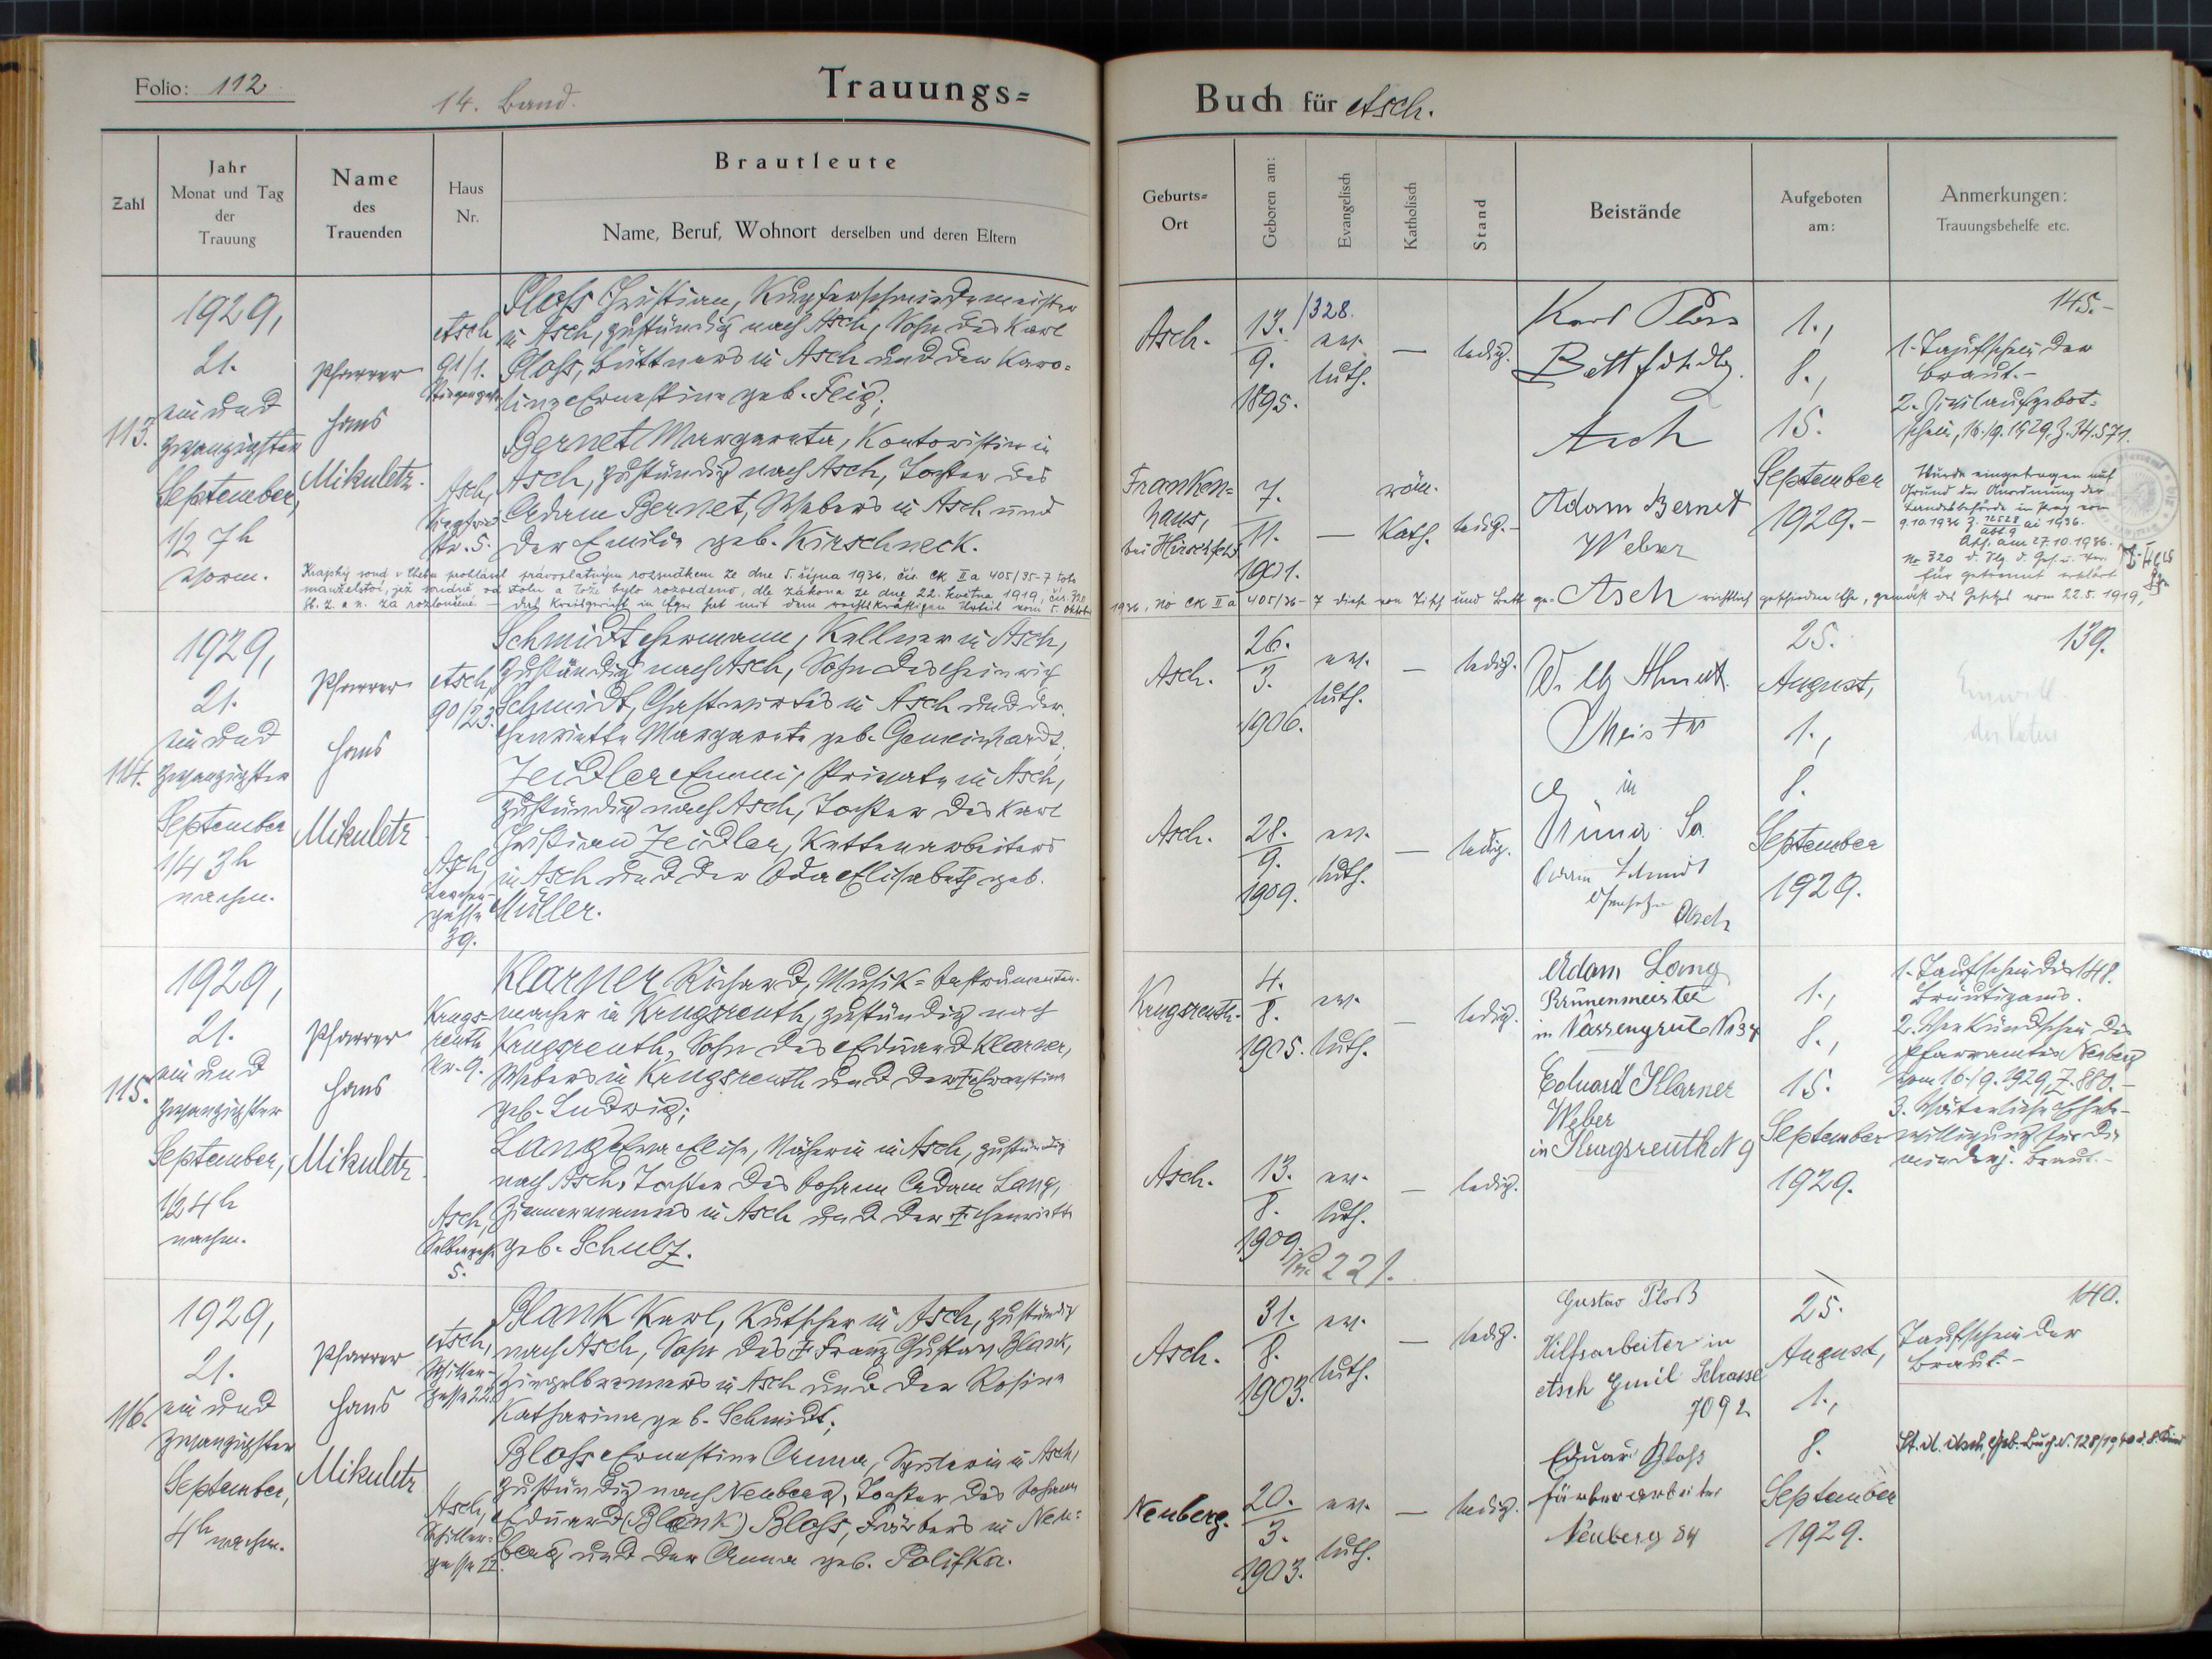 Folio: 112
14. Band.
Trauungs=
Buch für Asch.
Zahl
Jahr
Monat und Tag
der
Trauung
Name
des
Trauenden
Haus
Nr.
Brautleute
Name, Beruf, Wohnort derselben und deren Eltern
Geburts=
Ort
Geboren am:
Evangelisch
Katholisch
Stand
Beistände
Aufgeboten
am:
Anmerkungen:
Trauungsbehelfe etc.
113.
1929,
21.
ein und
zwanzigsten
September,
1/2 7 h
Pfarrer
Hans
Mikuletz.
Asch
91/1.
Ploss Christian, Kupferschmiedemeister
in Asch, zuständig nach Asch, Sohn des Karl
Ploss, Büttners in Asch und der Karo=
line Ernestine geb. Feig;
Asch,
Nr. 5.
Bernet Margareta, Kontoristin in
Asch, zuständig nach Asch, Tochter des
Adam Bernet, Webers in Asch und
der Emilie geb. Kirschneck.
Krajský soud v Chebu prohlásil právoplatným rozsudkem ze dne 5. října 1936, čís. CK IIa 405/35-7 toto
manželství, jež soudně od stolu a lože bylo rozvedeno, dle zákona ze dne 22. května 1919, čís. 320
Sb. z. a n. za rozloučené. – Das Kreisgericht in Eger hat mit dem rechtskräftigen Urteil vom 5. Oktober
1936, No CK IIa 405/36-7 diese von Tisch und Bett ge- richtlich geschiedene Ehe, gemäß des Gesetzes vom 22.5.1919,
Asch.
13./328.
9.
1895.
ev.
luth.
—
ledig.
Karl Ploss
Asch
1.,
8.,
15.
September
1929.-
145.-
1. Taufschein der
Braut.-
2. Zivilaufgebot=
schein, 16./9. 1929, Z. 34.571.
Franken=
haus,
bei Hirschfeld
7.
11.
1901.
—
röm.
Kath.
ledig.-
Adam Bernet
Weber
Asch
Wurde eingetragen auf
Grund der Anordnung der
Landesbehörde in Prag vom
9.10.1936
Asch am 27.10.1936.
No 320 d. Slg. d. Ges. u. Ver.
für getrennt erklärt.
114.
1929,
21.
ein und
zwanzigsten
September
1/4 3 h
nachm.
Pfarrer
Hans
Mikuletz
Asch,
90/23.
Schmidt Hermann, Kellner in Asch,
zuständig nach Asch, Sohn des Heinrich
Schmidt, Gastwirtes in Asch und der
Henriette Margarete geb. Gemeinhardt;
Asch,
gasse
39.
Zeidler Emmi, Private in Asch,
zuständig nach Asch, Tochter des Karl
Christian Zeidler, Kettenarbeiters
in Asch und der Ida Elisabeth geb.
Müller.
Asch.
26.
3.
1906.
ev.
luth.
—
ledig.
Meister
in
Grüna Sa.
25.
August,
1.,
8.
September
1929.
139.
Einwill
des Vaters
Asch.
28.
9.
1909.
ev.
luth.
—
ledig.
Schmidt
Asch
115.
1929,
21.
ein und
zwanzigsten
September,
1/2 4 h
nachm.
Pfarrer
Hans
Mikuletz.
Krugs=
reuth
Nr. 9.
Klarner Richard, Musik=Instrumenten-
macher in Krugsreuth, zuständig nach
Krugsreuth, Sohn des Eduard Klarner,
Webers in Krugsreuth und der Ernestine
geb. Ludwig;
Asch,
Selbergasse
5.
Lang Erna Elise, Näherin in Asch, zuständig
nach Asch, Tochter des Johann Adam Lang,
Zimmermannes in Asch und der † Henriette
geb. Schulz.
Krugsreuth.
4.
8.
1905.
ev.
luth.
—
ledig.
Adam Lang
Brünenmeister
in Nassengrub No 34
Eduard Klarner
Weber
in Krugsreuth N 9
1.,
8.,
15.
September
1929.
148.
1. Taufschein des
Bräutigams.
2. Verkündschein des
Pfarramtes Neuberg
vom 16./9. 1929, Z. 880.-
3. Väterliche Ehebe-
willigung für die
minderj. Braut.-
Asch.
13.
8.
1909.
ev.
luth.
—
ledig.
221.
116.
1929,
21.
ein und
zwanzigsten
September,
4 h nachm.
Pfarrer
Hans
Mikuletz
Asch,
Schiller-
gasse 22.
Blank Karl, Kutscher in Asch, zuständig
nach Asch, Sohn des † Franz Gustav Blank,
Ziegelbrenners in Asch und der Rosina
Katharina geb. Schmidt;
Asch,
Schiller-
gasse 22.
Bloss Ernestine Anna, Spulerin in Asch,
zuständig nach Neuberg, Tochter des Johann
Eduard (Blank) Bloss, Färbers in Neu=
berg und der Anna geb. Polifka.
Asch.
31.
8.
1903.
ev.
luth.
—
ledig.
Gustav Ploß
Hilfsarbeiter in
Asch Emil Schasse
7092
25.
August,
1.,
8.
September
1929.
140.
Taufschein der
Braut.-
St. A. Asch, Geb. Buch N. 128/1940
Neuberg.
20.
3.
1903.
ev.
luth.
—
ledig.
Eduard Bloss
Färberarbeiter
Neuberg 84